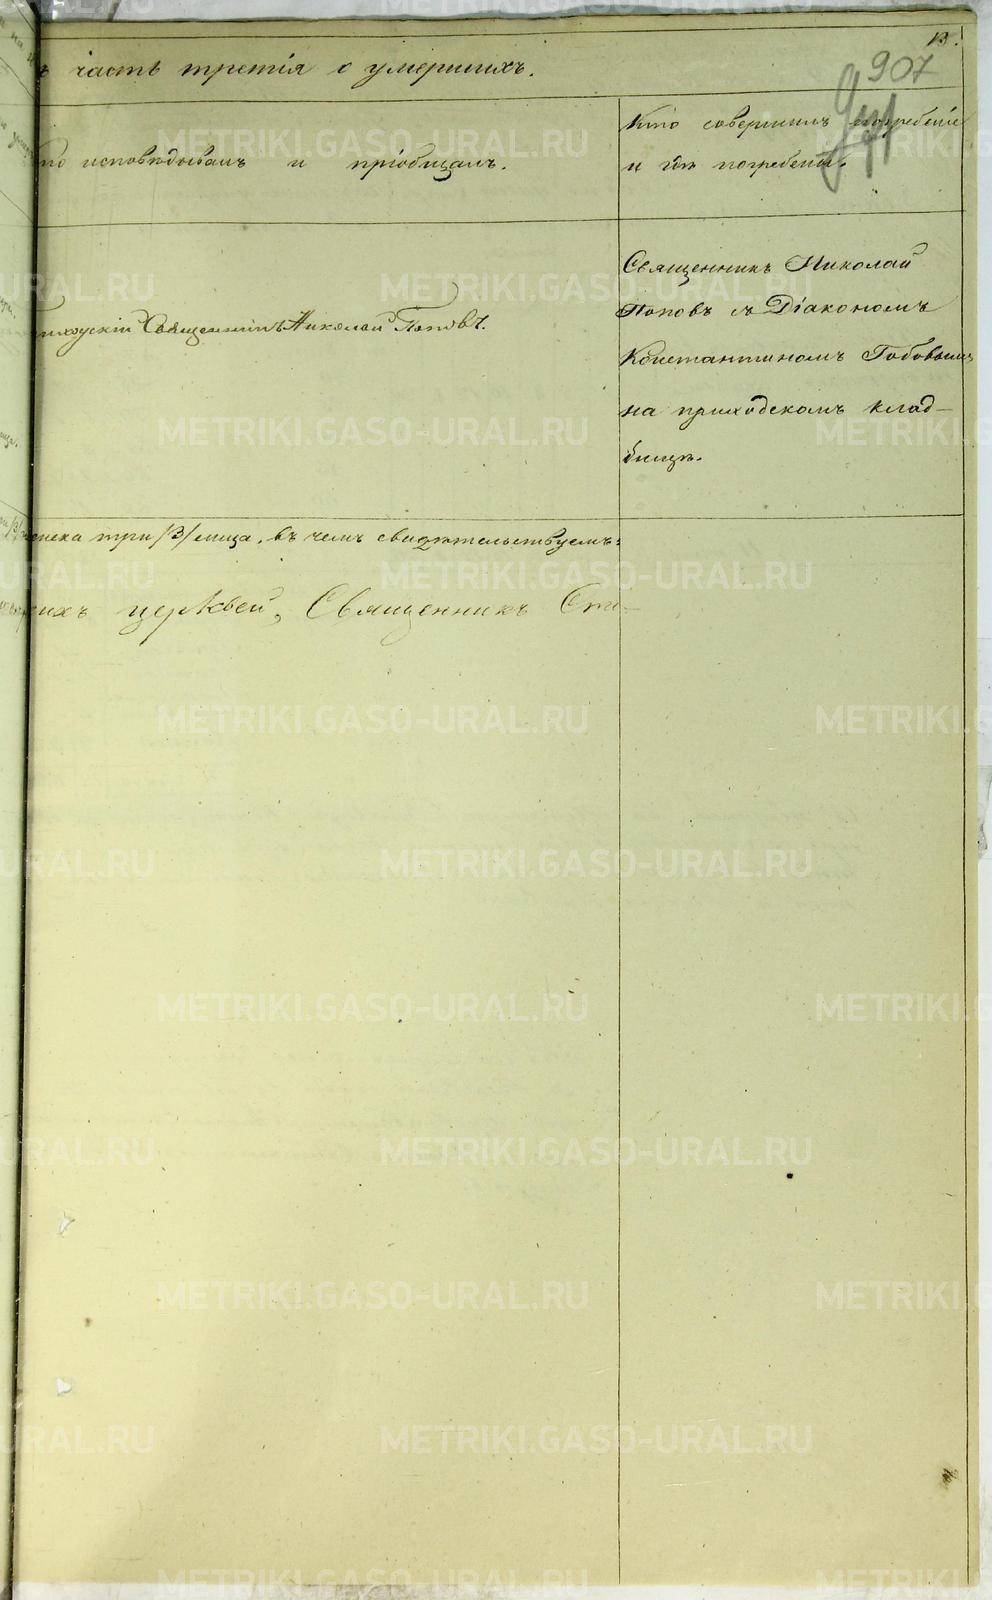 13.
907
ъ часть третiя о умершихъ.
то исповѣдывалъ и прiобщалъ.
Кто совершилъ погребенiе
и гдѣ погребены.
Приходскiй Священникъ Николай Поповъ.
Священникъ Николай
Поповъ съ Дiакономъ
Константиномъ
на приходскомъ клад-
бищѣ.
человѣка три /3/ лица, въ чемъ свидѣтельствуемъ:
церквей, Священникъ Сте-
METRIKI.GASO-URAL.RU